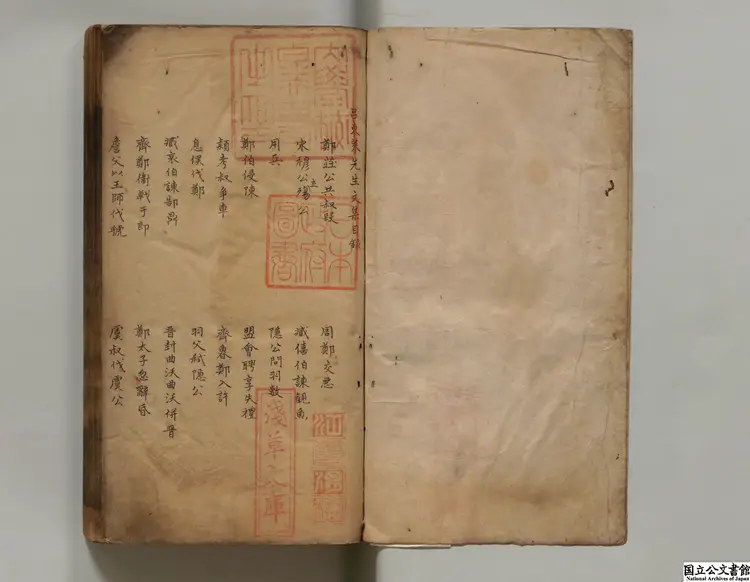 呂東萊先生文集目録
鄭莊公共叔段
周鄭交惡
宋穆公立殤公
臧僖伯諫觀魚
用兵
隱公問羽數
鄭伯侵陳
盟會聘享失禮
潁考叔爭車
齊魯鄭入許
息侯伐鄭
羽父弒隱公
臧哀伯諫郜鼎
晋封曲沃曲沃併晋
齊鄭衞戰于郎
鄭太子忽辭昏
詹父以王師伐虢
虞叔伐虞公
日本
政府
圖書
淺草文庫
国立公文書館
National Archives of Japan